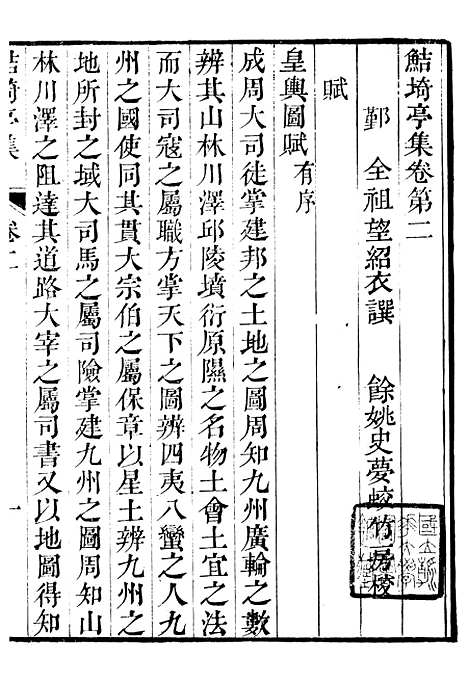 鮚埼亭集卷第二
鄞　全祖望紹衣譔　　餘姚史夢蛟竹房校
賦
皇輿圖賦有序
成周大司徒掌建邦之土地之圖周知九州廣輪之數
辨其山林川澤邱陵墳衍原隰之名物土會土宜之法
而大司寇之屬職方掌天下之圖辨四夷八蠻之人九
州之國使同其貫大宗伯之屬保章以星土辨九州之
地所封之域大司馬之屬司險掌建九州之圖周知山
林川澤之阻達其道路大宰之屬司書又以地圖得知
鮚埼亭集
卷二
一